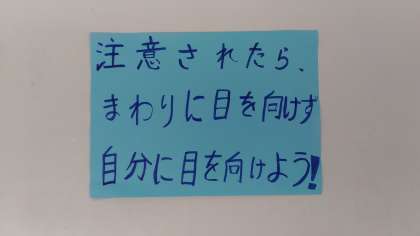 注意されたら、
まわりに目を向けず
自分に目を向けよう!